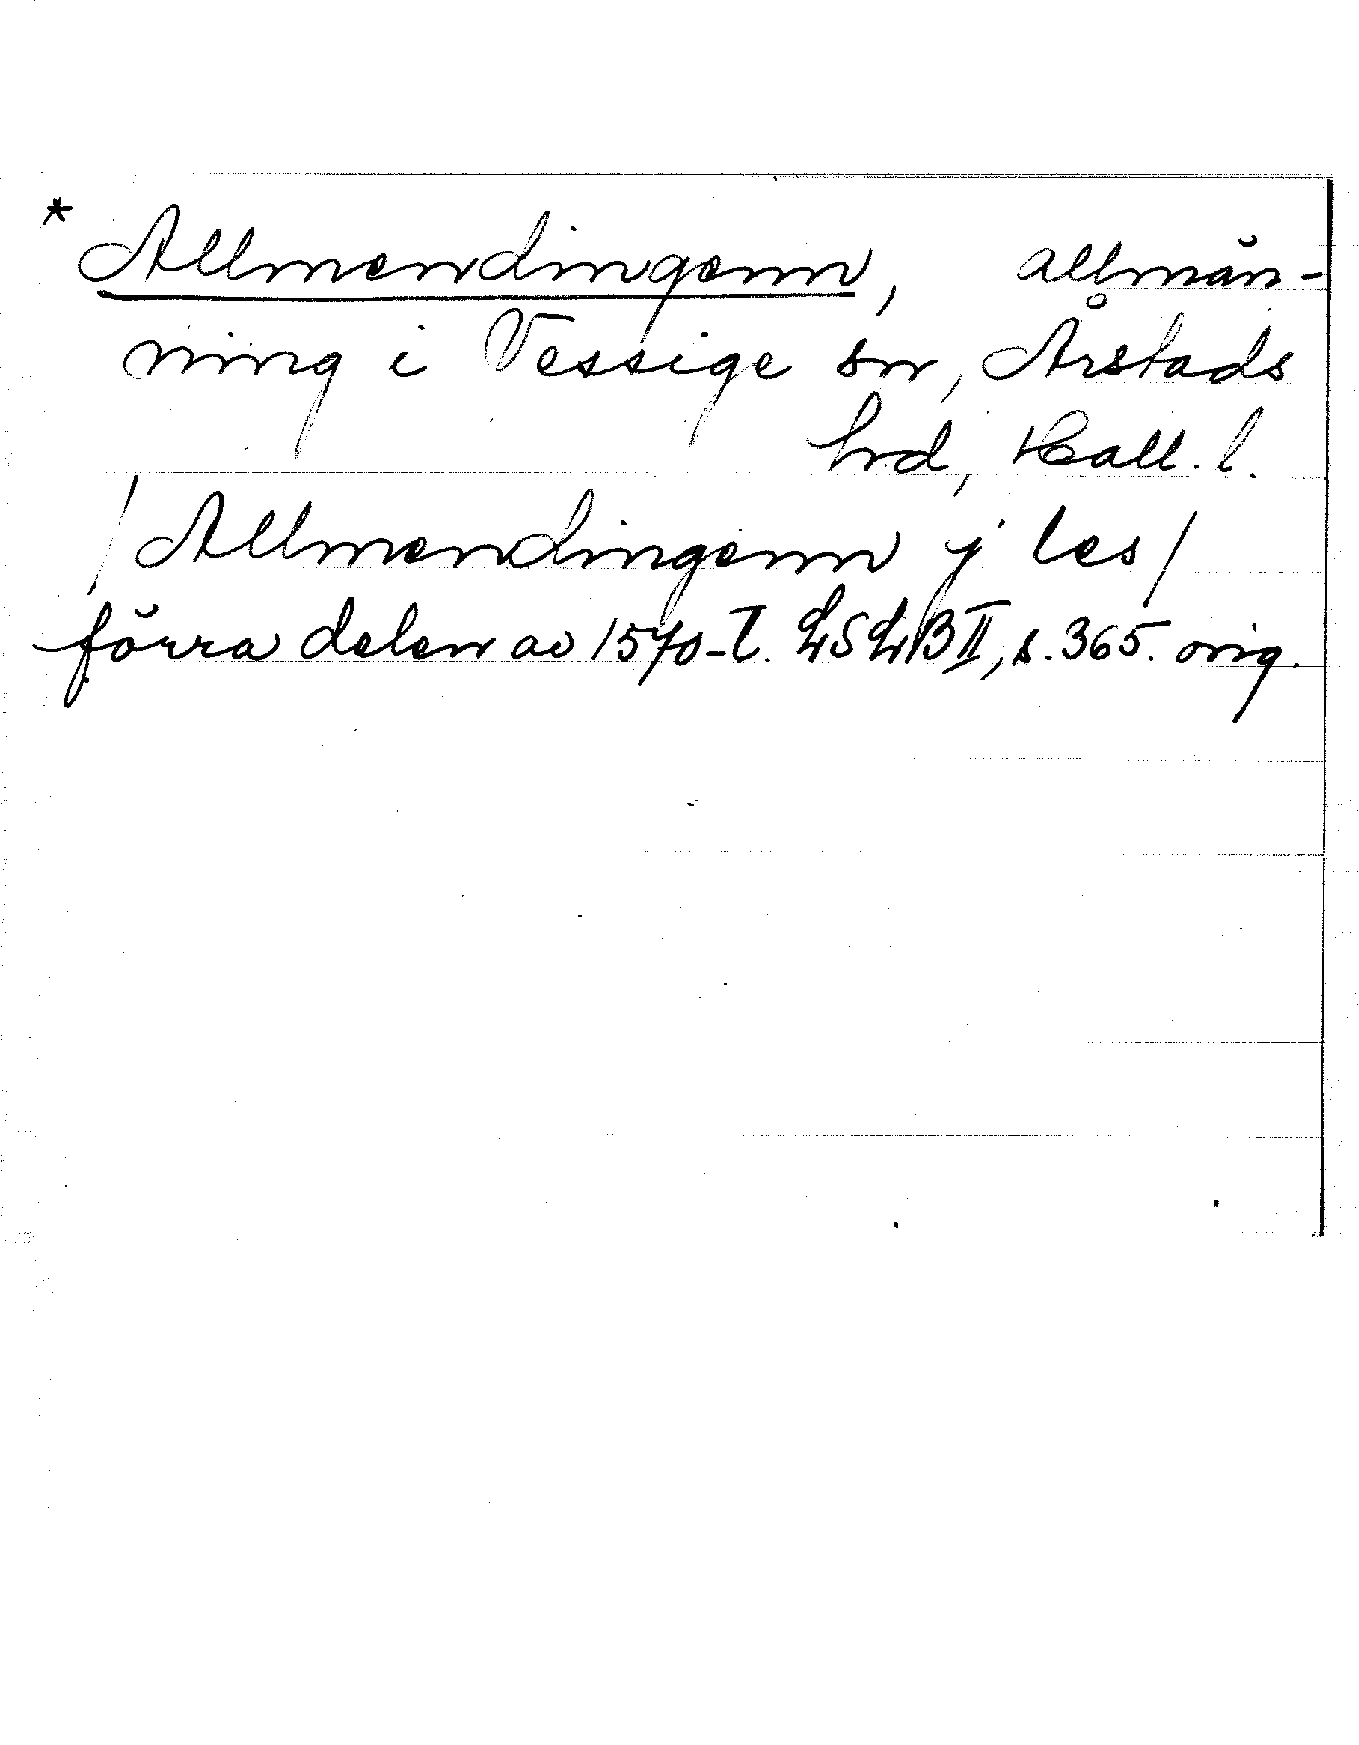 * Allmendingenn, allmän-
ning i Vessige sn, Årstads
hrd, Hall. l.
/Allmendingenn j les/
förra delen av 1570-t. LSLB II, s. 365. orig.